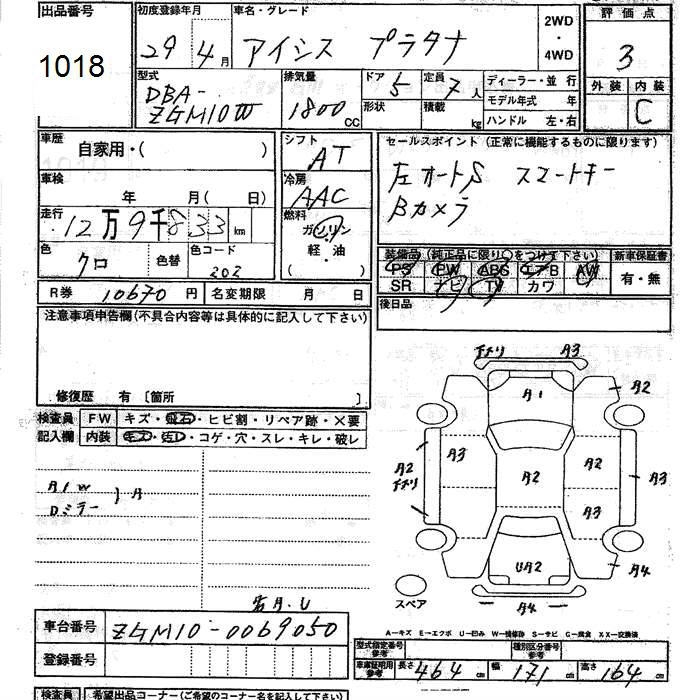 出品番号 初度登録年月 車名・グレード 2WD ・ 4WD 評価点
1018 29年 4月 アイシス プラタナ 3
型式 DBA-ZGM10W 排気量 1800 CC ドア 5 定員 7人 ディーラー・並行
形状 積載 kg モデル年式 年
ハンドル 左・右
外装 内装 C
車歴 自家用・( ) シフト AT
セールスポイント (正常に機能するものに限ります)
左オートS スマートキー
Bカメラ
車検 年 月( 日) 冷房 AAC
走行 12万9千833km 燃料 ガソリン 軽・油 ( )
色 クロ 色替 色コード 202
装備品(純正品に限り○をつけて下さい) 新車保証書
PS PW ABS エアB AW 有・無
SR ナビ TV カワ
R券 10670円 名変期限 月 日
後日品
注意事項申告欄(不具合内容等は具体的に記入して下さい)
修復歴 有 〔箇所 〕
検査員 FW キズ・飛石・ヒビ割・リペア跡・×要
記入欄 内装 キズ・汚レ・コゲ・穴・スレ・キレ・破レ
A/W
Dミラー
}A
チヌリ A3
A1 A2
A3 A2 A2 A2 チヌリ A3
A3
UA2 A4
A4
スペア
A-キズ E-エクボ U-凹み W-補修跡 S-サビ C-腐食 XX-交換済
車台番号 ZGM10-0069050
登録番号
型式指定番号 参考 種別区分番号 参考
車庫証明用 参考 長さ 464cm 幅 171cm 高さ 164cm
検査員 希望出品コーナー(ご希望のコーナー名を記入して下さい)